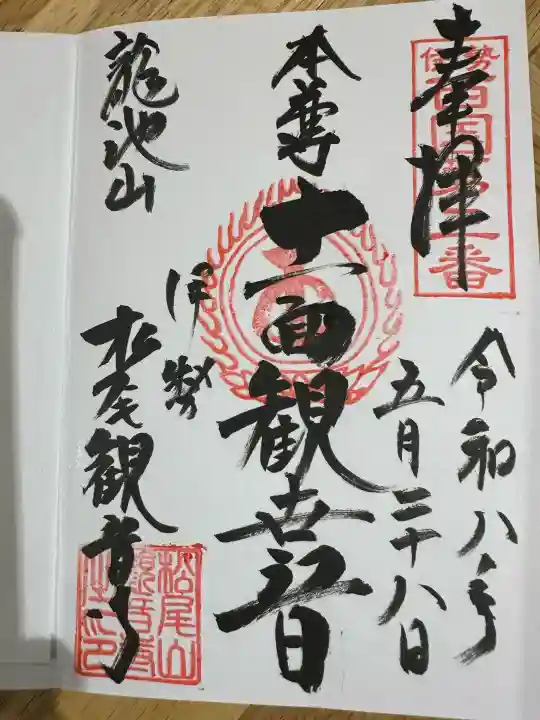 奉拝
伊勢
西国第一番
令和八年
五月二十八日
本尊
十一面観世音
伊勢
龍池山
松尾観音寺
松尾山
観音寺